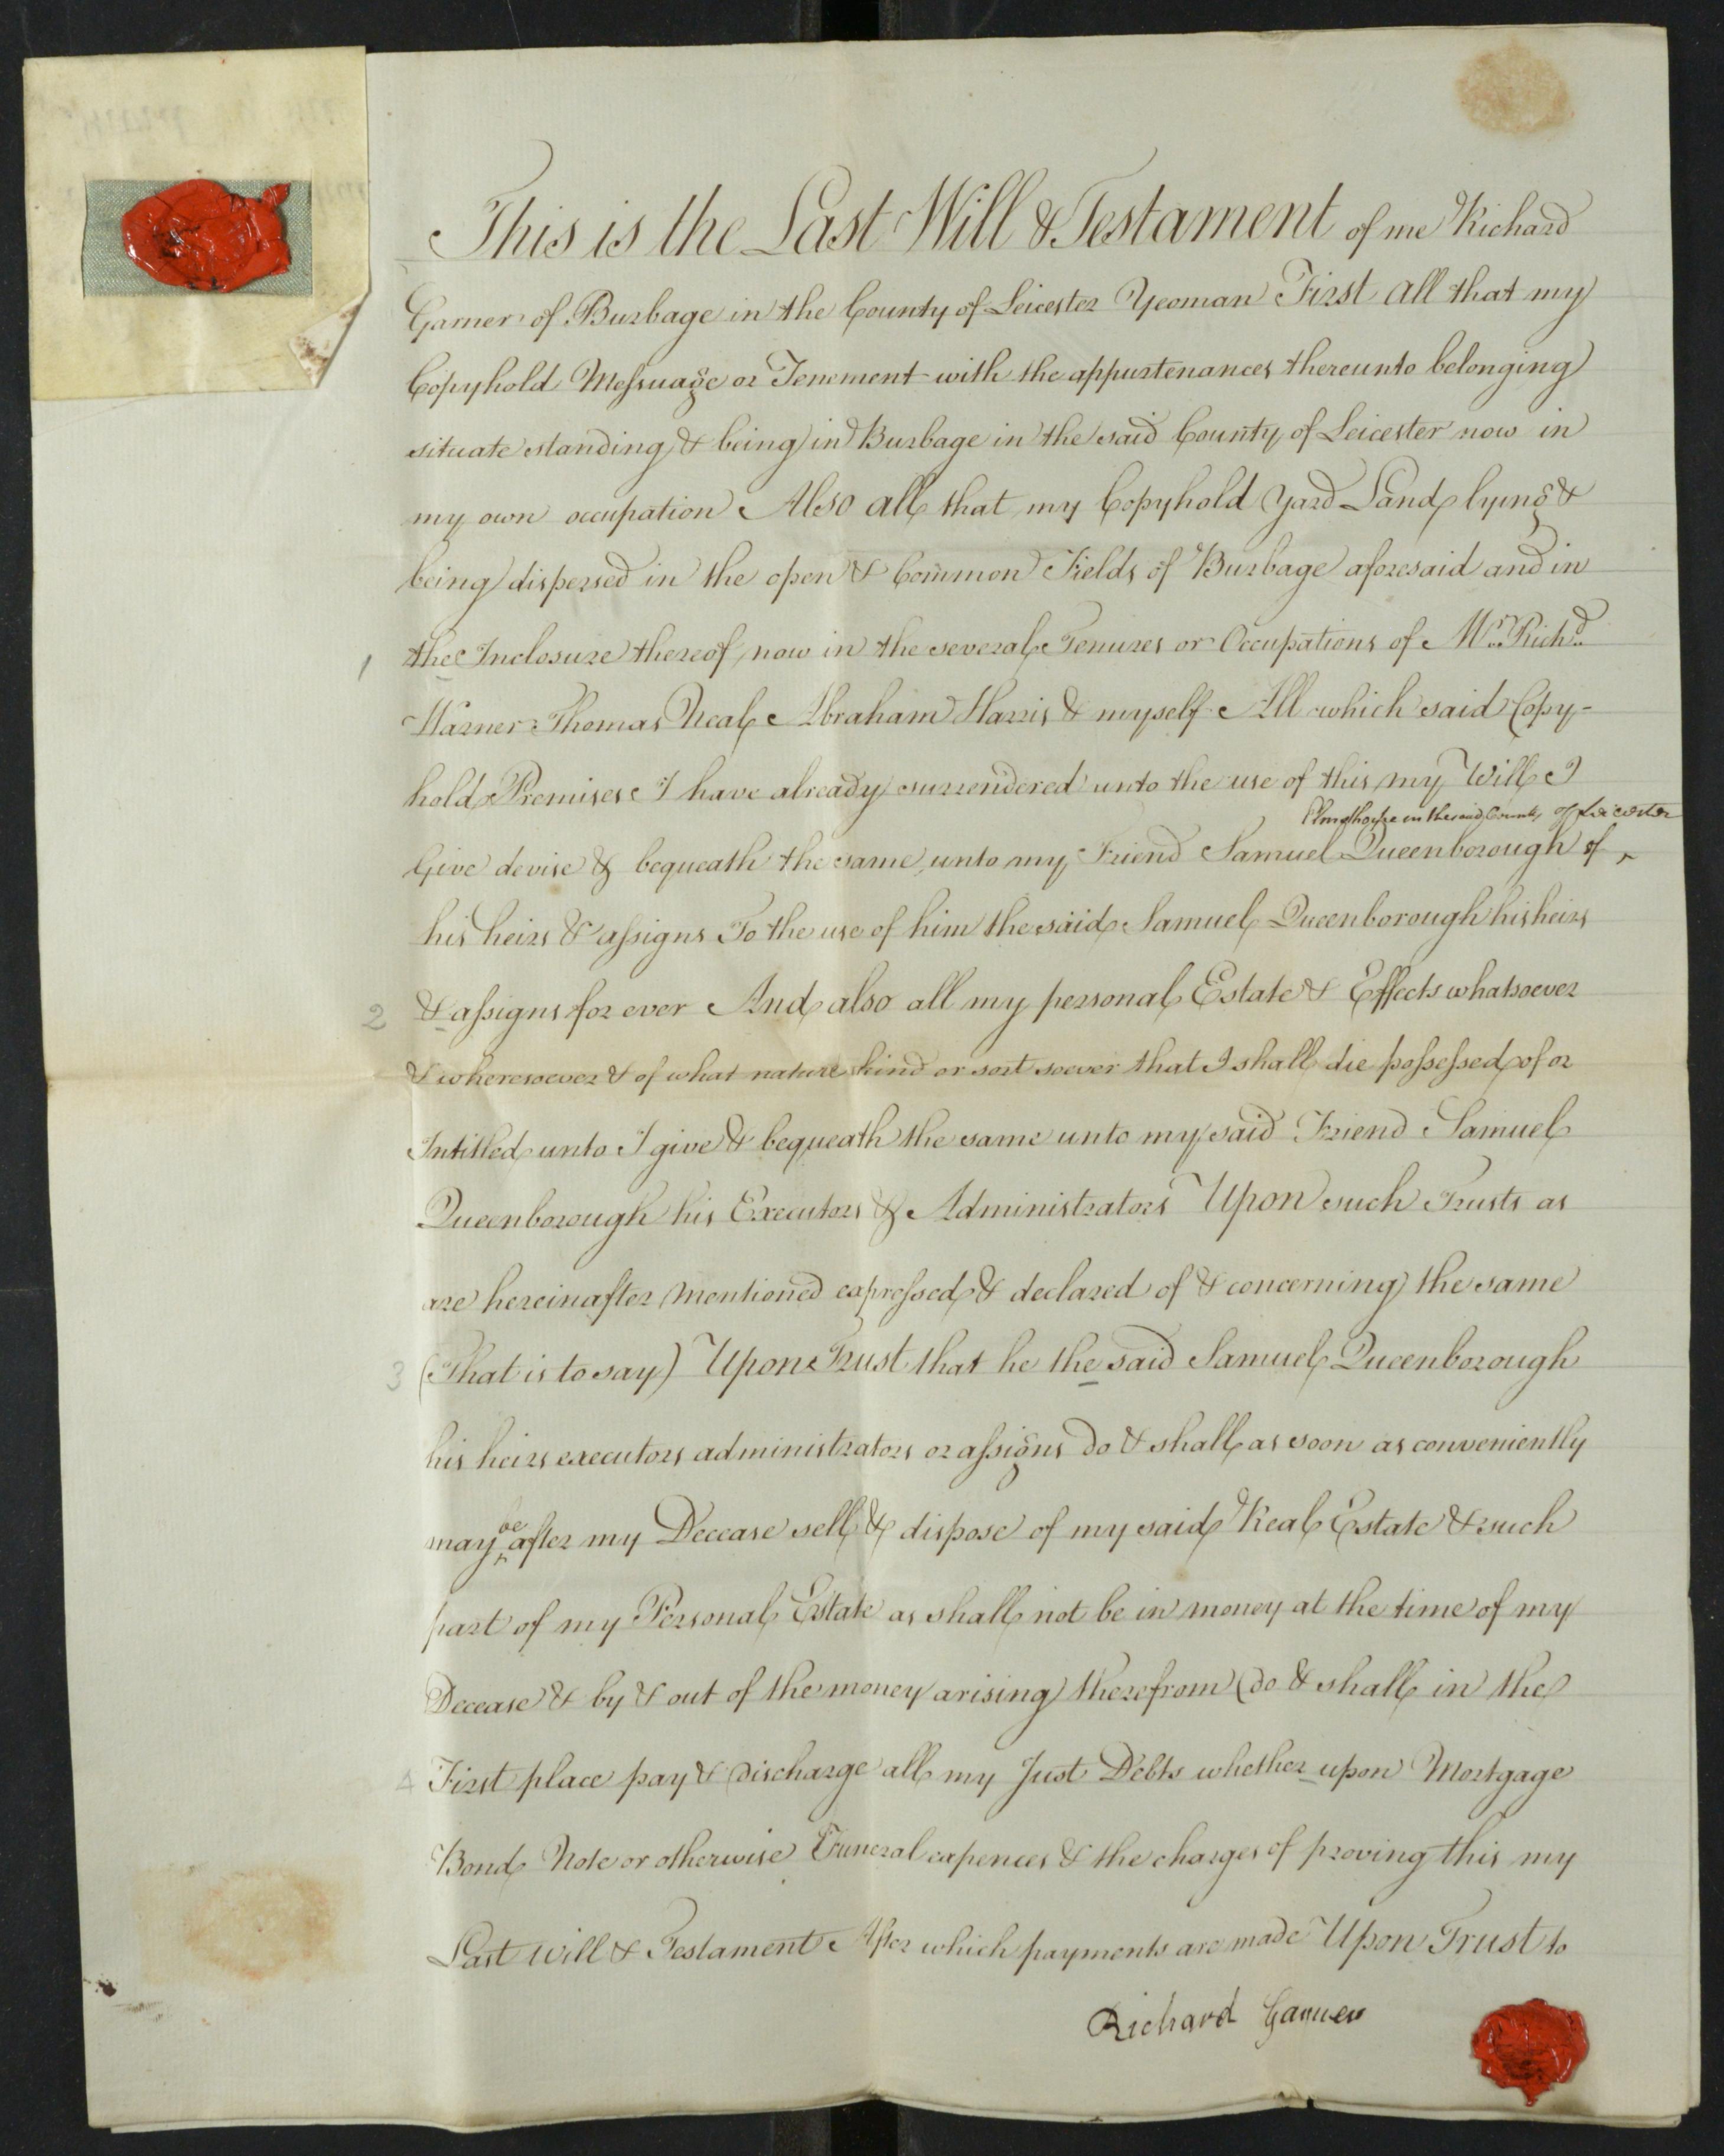 This is the Last Will & Testament of me Richard
Garner of Burbage in the County of Leicester Yeoman First all that my
Copyhold Messuage or Tenement with the appurtenances thereunto belonging
situate standing & being in Burbage in the said County of Leicester now in
my own occupation Also all that my Copyhold Yard Land lying &
being dispersed in the open & Common Fields of Burbage aforesaid and in
1 the Inclosure thereof now in the several Tenures or Occupations of Mr. Richd.
Warner Thomas Neal Abraham Harris & myself All which said Copy-
hold Premises I have already surrendered unto the use of this my Will I
Elmesthorpe in the said County of Leicester
Give devise & bequeath the same unto my Friend Samuel Queenborough of ^
his heirs & assigns To the use of him the said Samuel Queenborough his heirs
2 & assigns for ever And also all my personal Estate & Effects whatsoever
& wheresoever & of what nature kind or sort soever that I shall die possessed of or
Intitled unto I give & bequeath the same unto my said Friend Samuel
Queenborough his Executors & Administrators Upon such Trusts as
are hereinafter mentioned expressed & declared of & concerning the same
3 (That is to say) Upon Trust that he the said Samuel Queenborough
his heirs executors administrators or assigns do & shall as soon as conveniently
may ^be after my Decease sell & dispose of my said Real Estate & such
part of my Personal Estate as shall not be in money at the time of my
Decease & by & out of the money arising therefrom do & shall in the
4 First place pay & discharge all my Just Debts whether upon Mortgage
Bond Note or otherwise Funeral expences & the charges of proving this my
Last Will & Testament After which payments are made Upon Trust to
Richard Garner